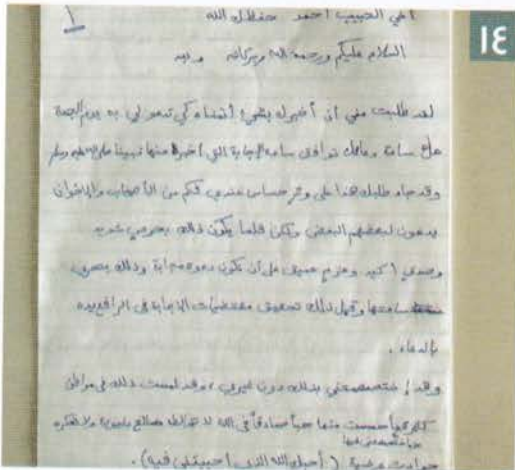 ١٤
١
أخي الحبيب أحمد حفظك الله
السلام عليكم ورحمة الله وبركاته وبعد
لقد طلبت مني أن أخبرك بشيء أتمناه كي تدعو لي به يوم الجمعة
ساعة توافق ساعة الإجابة التي أخبرنا عنها نبينا صلى الله عليه وسلم
وقد جاء طلبك هذا على وتر حساس عندي فكم من الأصحاب والإخوان
يدعون لبعضهم البعض ولكن قلما يكون ذلك بحرص شديد
أكيد وعزم عميق على أن تكون دعوة مجابة وذلك بتحري
ساعتها وقبل ذلك تحقيق مقتضيات الإجابة في الرافع يديه
بالدعاء.
وقد اختصصتني بذلك دون غيري، وقد لمست ذلك في مواطن
كثيرة أحسست منها حباً صادقاً في الله لا تخالطه مصالح ولا تعكره
(أحبك الله الذي أحببتني فيه).